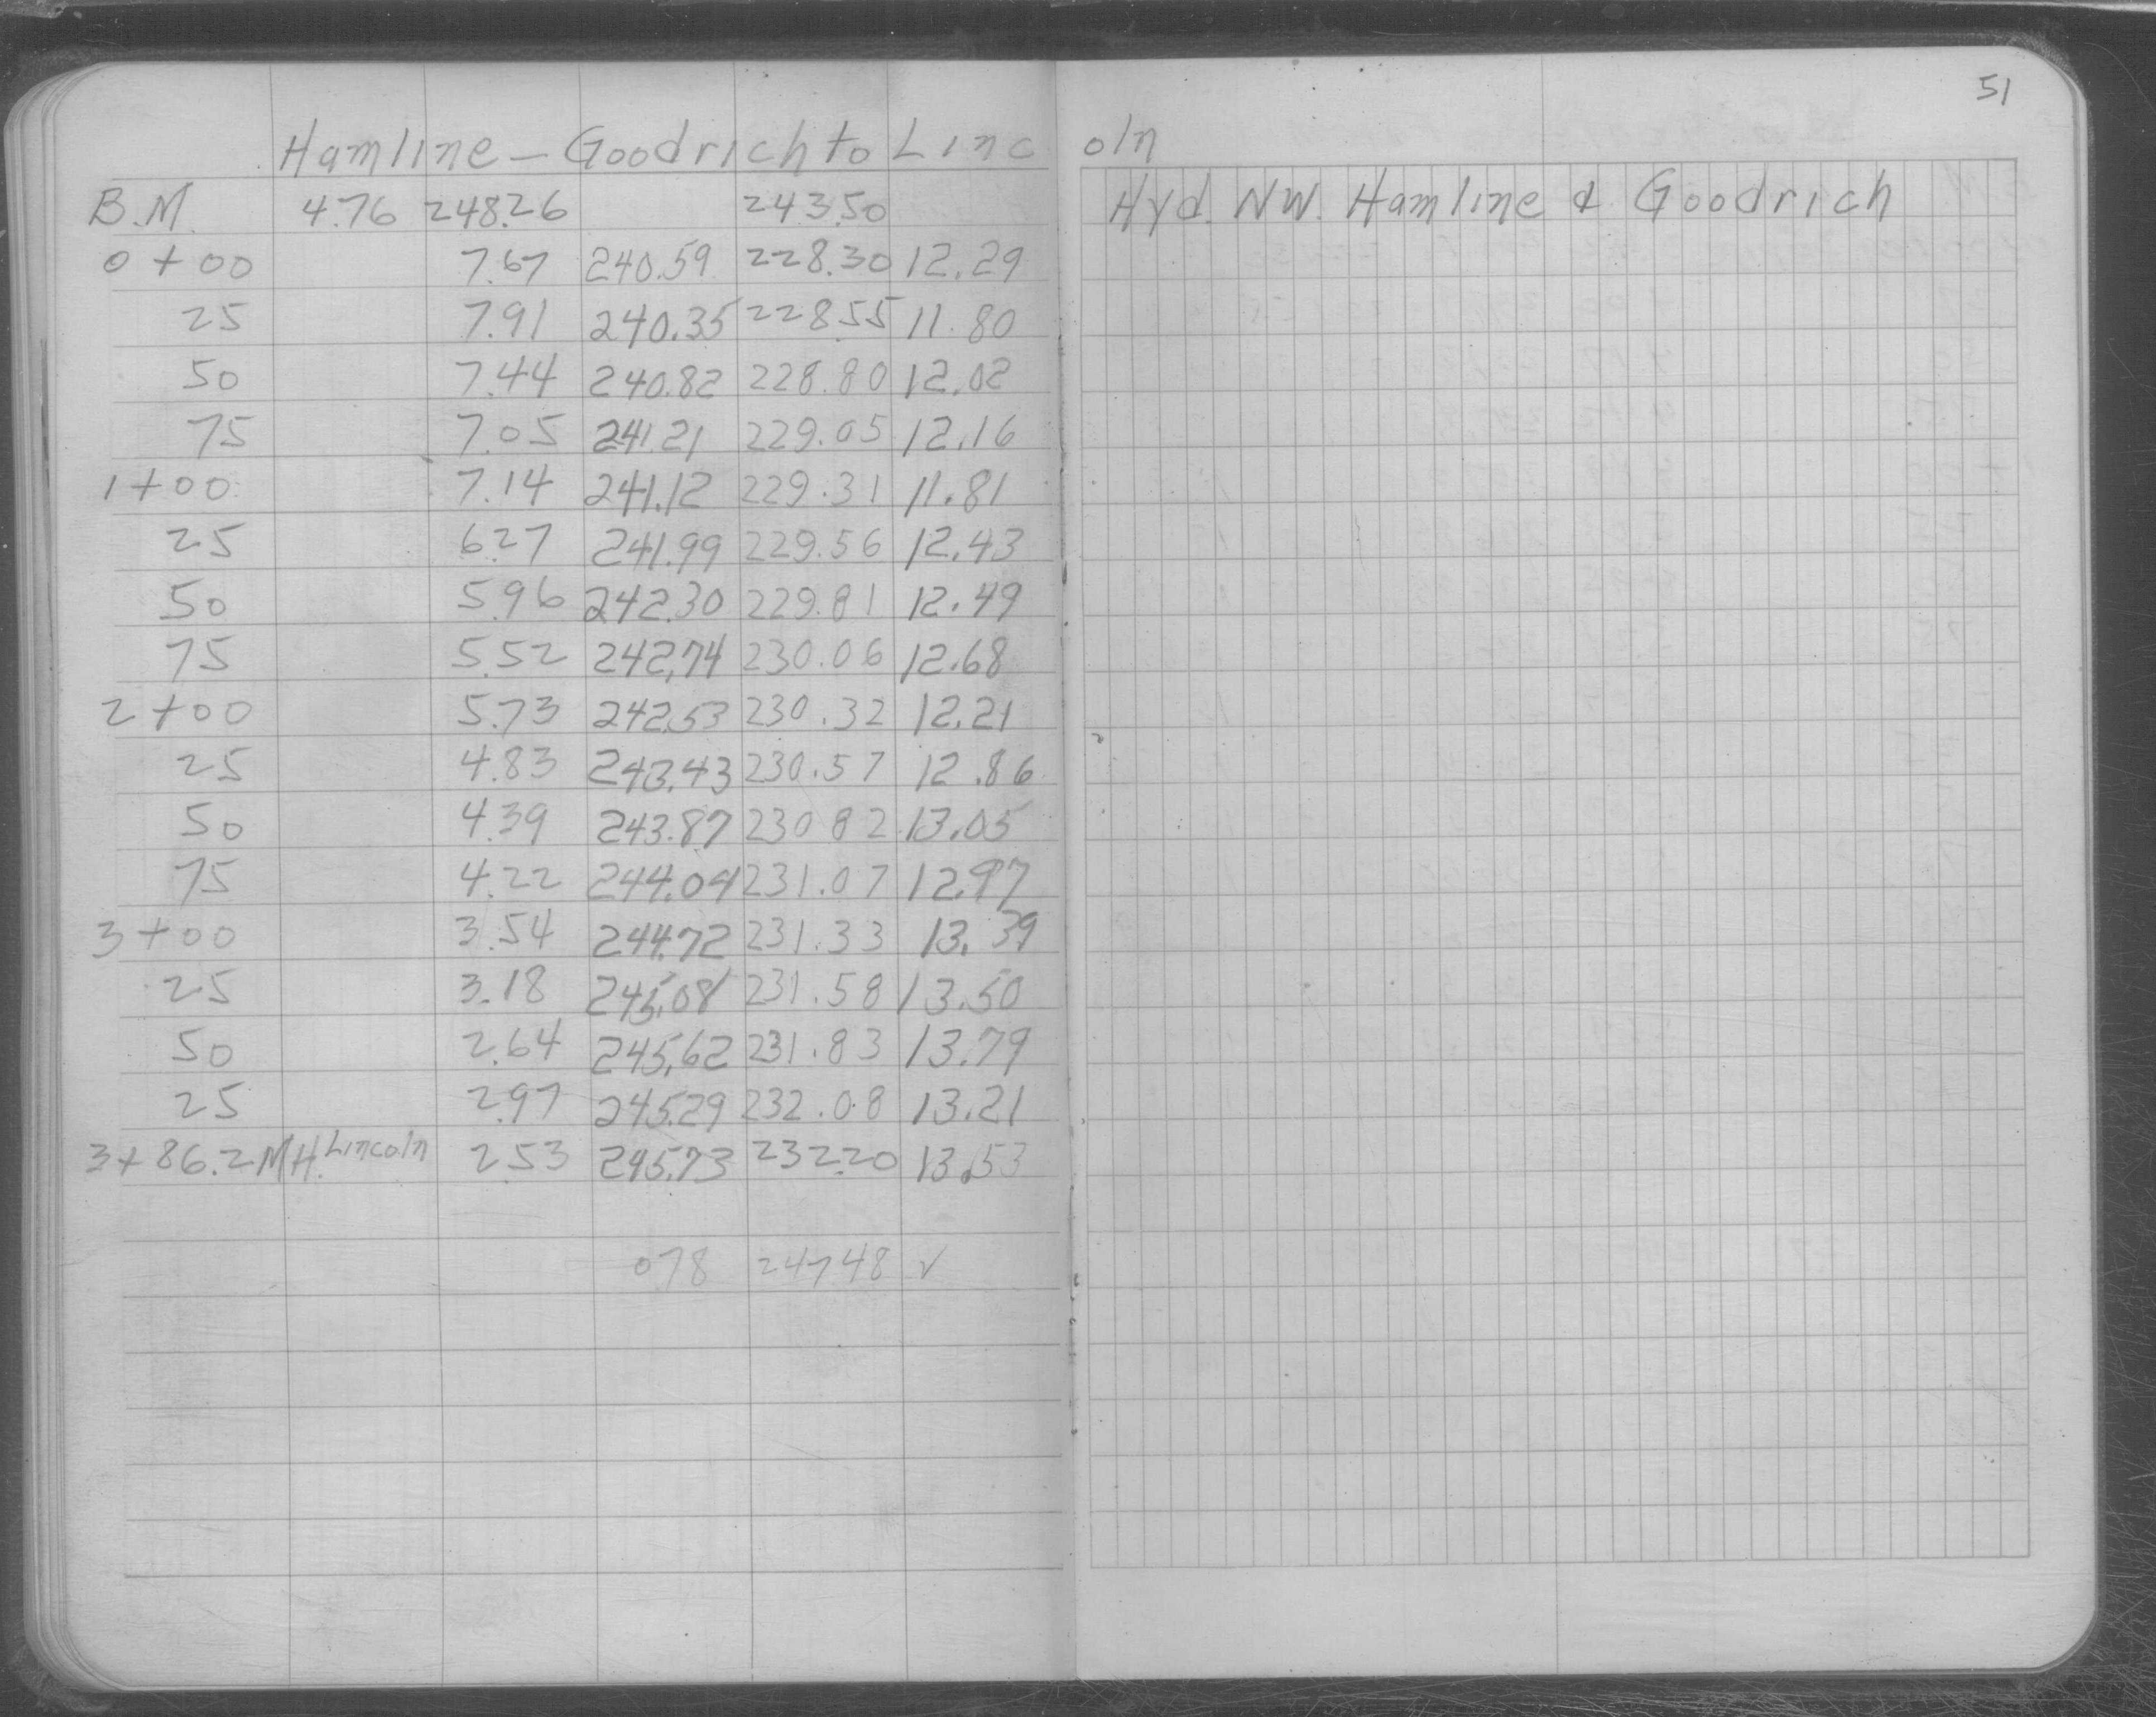 51
Hamline - Goodrich to Lincoln
B.M. 4.76 248.26 243.50 Hyd. NW. Hamline & Goodrich
0+00 7.67 240.59 228.30 12.29
25 7.91 240.35 228.55 11.80
50 7.44 240.82 228.80 12.02
75 7.05 241.21 229.05 12.16
1+00 7.14 241.12 229.31 11.81
25 6.27 241.99 229.56 12.43
50 5.96 242.30 229.81 12.49
75 5.52 242.74 230.06 12.68
2+00 5.73 242.53 230.32 12.21
25 4.83 243.43 230.57 12.86
50 4.39 243.87 230 82 13.05
75 4.22 244.04 231.07 12.97
3+00 3.54 244.72 231.33 13.39
25 3.18 245.08 231.58 13.50
50 2.64 245.62 231.83 13.79
25 2.97 245.29 232.08 13.21
3+86.2 M.H. Lincoln 2.53 245.73 232.20 13.53
078 24748 ✓